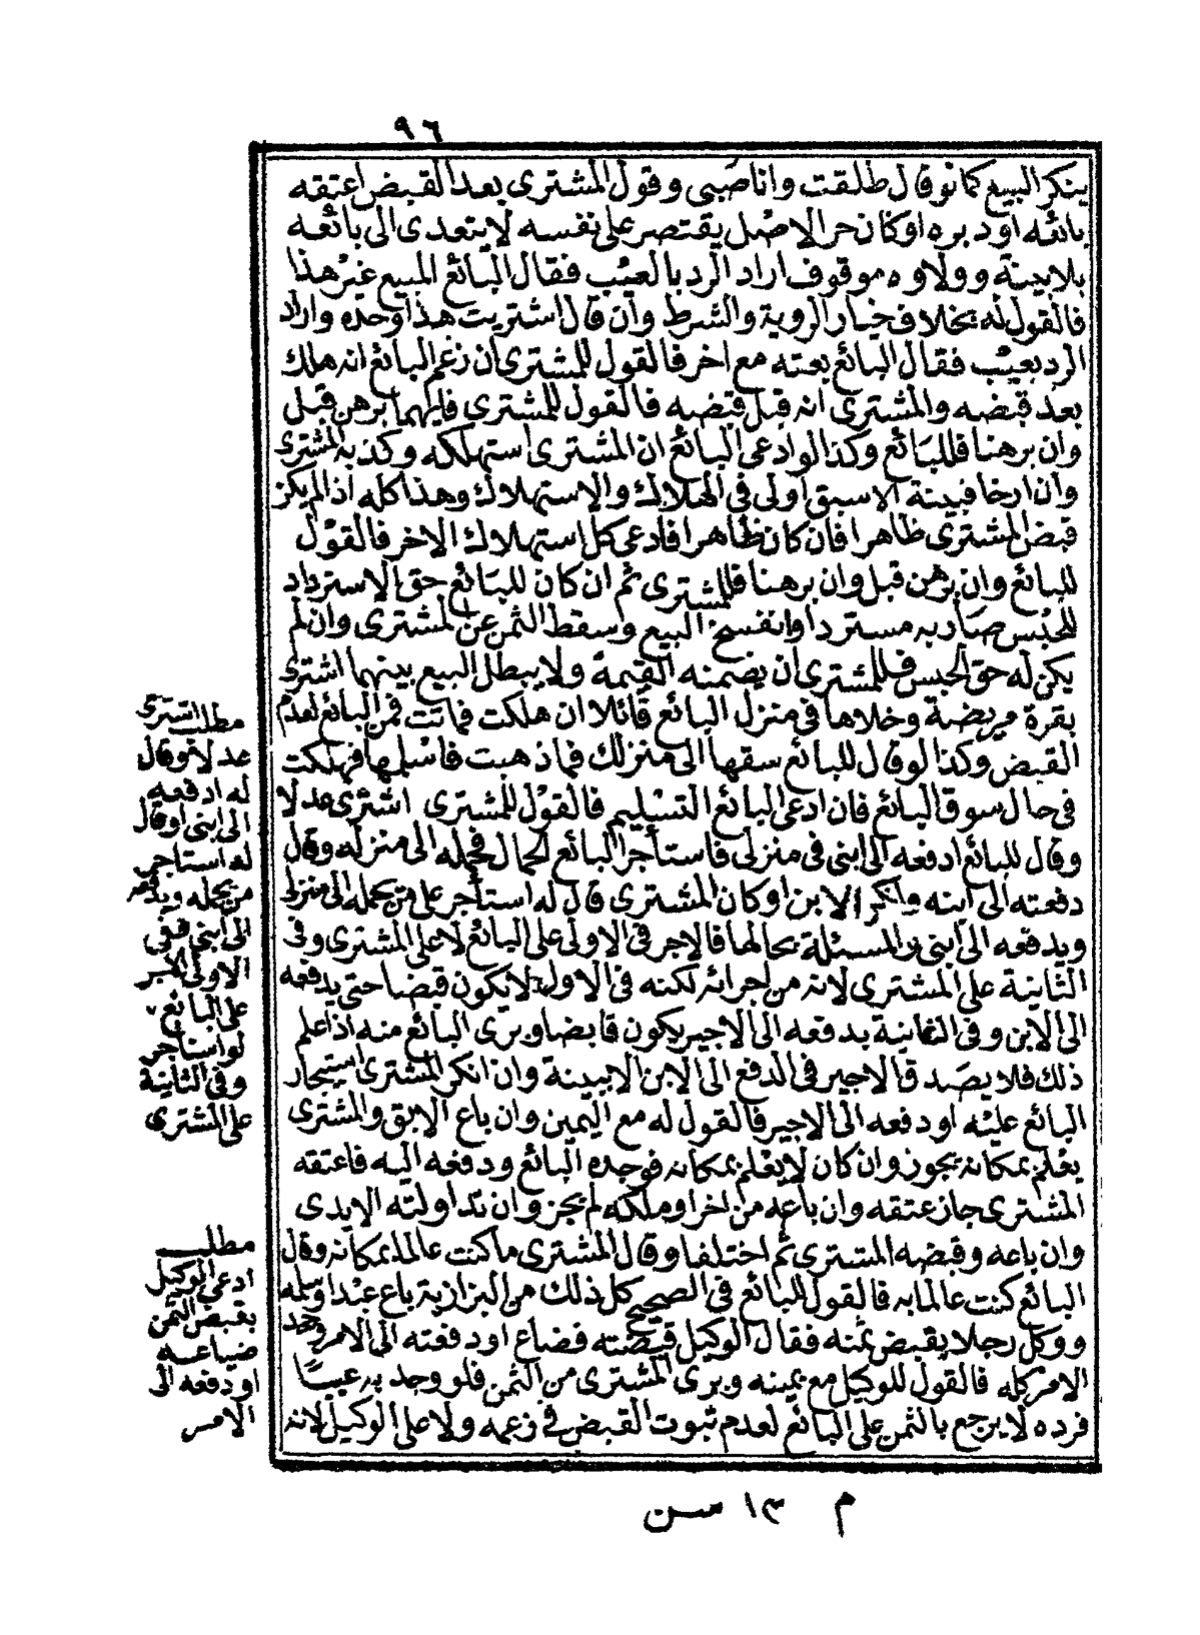 ٩٦
ينكر البيع كما لو قال طلقت وانا صبى وقول المشترى بعد القبض اعتقه
بائعه او دبره او كان حر الاصل يقتصر على نفسه لا يتعدى الى بائعه
بلا بينة وولاوه موقوف اراد الرد بالعيب فقال البائع المبيع غير هذا
فالقول له بخلاف خيار الروية والشرط وان قال اشتريت هذا وحده واراد
الرد بعيب فقال البائع بعته مع اخر فالقول للمشترى ان زعم البائع انه هلك
بعد قبضه والمشترى انه قبل قبضه فالقول للمشترى فايهما برهن قبل
وان برهنا فللبائع وكذا لو ادعى البائع ان المشترى استهلكه وكذبه المشترى
وان ارخا فبينة الاسبق اولى فى الهلاك والاستهلاك وهذا كله اذا لم يكن
قبض المشترى ظاهرا فان كان ظاهرا فادعى كل استهلاك الاخر فالقول
للبائع وان برهن قبل وان برهنا فللمشترى ثم ان كان للبائع حق الاسترداد
للحبس صار به مستردا وانفسخ البيع وسقط الثمن عن المشترى وان لم
يكن له حق الحبس فللمشترى ان يضمنه القيمة ولا يبطل البيع بينهما اشترى
بقرة مريضة وخلاها فى منزل البائع قائلا ان هلكت فماتت فمن البائع لعدم
القبض وكذا لو قال للبائع سقها الى منزلك فما ذهبت فاسلمها فهلكت
فى حال سوق البائع فان ادعى البائع التسليم فالقول للمشترى اشترى عدلا
وقال للبائع ادفعه الى ابنى فى منزلى فاستأجر البائع لحمال فحمله الى منزله وقال
دفعته الى ابنه وانكر الابن او كان المشترى قال له استأجر على من يحمله الى منزلى
ويدفعه الى ابنى والمسئلة بحالها فالاجر فى الاولى على البائع لا على المشترى وفى
الثانية على المشترى لانه من اجرائه لكنه فى الاول لا يكون قبضا حتى يدفعه
الى الابن وفى الثانية بدفعه الى الاجير يكون قابضا وبرى البائع منه اذا علم
ذلك فلا يصدق الاجير فى الدفع الى الابن الا ببينة وان انكر المشترى استيجار
البائع عليه او دفعه الى الاجير فالقول له مع اليمين وان باع الابق والمشترى
يعلم بمكانه يجوز وان كان لا يعلم بمكانه فوجده البائع ودفعه اليه فاعتقه
المشترى جاز عتقه وان باعه من اخر او ملكه لم يجز وان تداولته الايدى
وان باعه وقبضه المشترى ثم اختلفا وقال المشترى ما كنت عالما بمكانه وقال
البائع كنت عالما به فالقول للبائع فى الصحيح كل ذلك من البزازية باع عبدا وسلمه
ووكل رجلا بقبض ثمنه فقال الوكيل قبضته فضاع او دفعته الى الامر وجحد
الامر كله فالقول للوكيل مع يمينه وبرى المشترى من الثمن فلو وجد به عيبا
فرده لا يرجع بالثمن على البائع لعدم ثبوت القبض فى زعمه ولا على الوكيل لانه
مطلب اشترى
عدلا وقال
له ادفعه
الى ابنى او قال
له استاجر
من يحمله ويدفعه
الى ابنى ففى
الاولى الاجر
على البائع
لو استاجر
وفى الثانية
على المشترى
مطلب
ادعى الوكيل
بقبض الثمن
ضياعه
او دفعه الى
الامر
م ١٣ سن